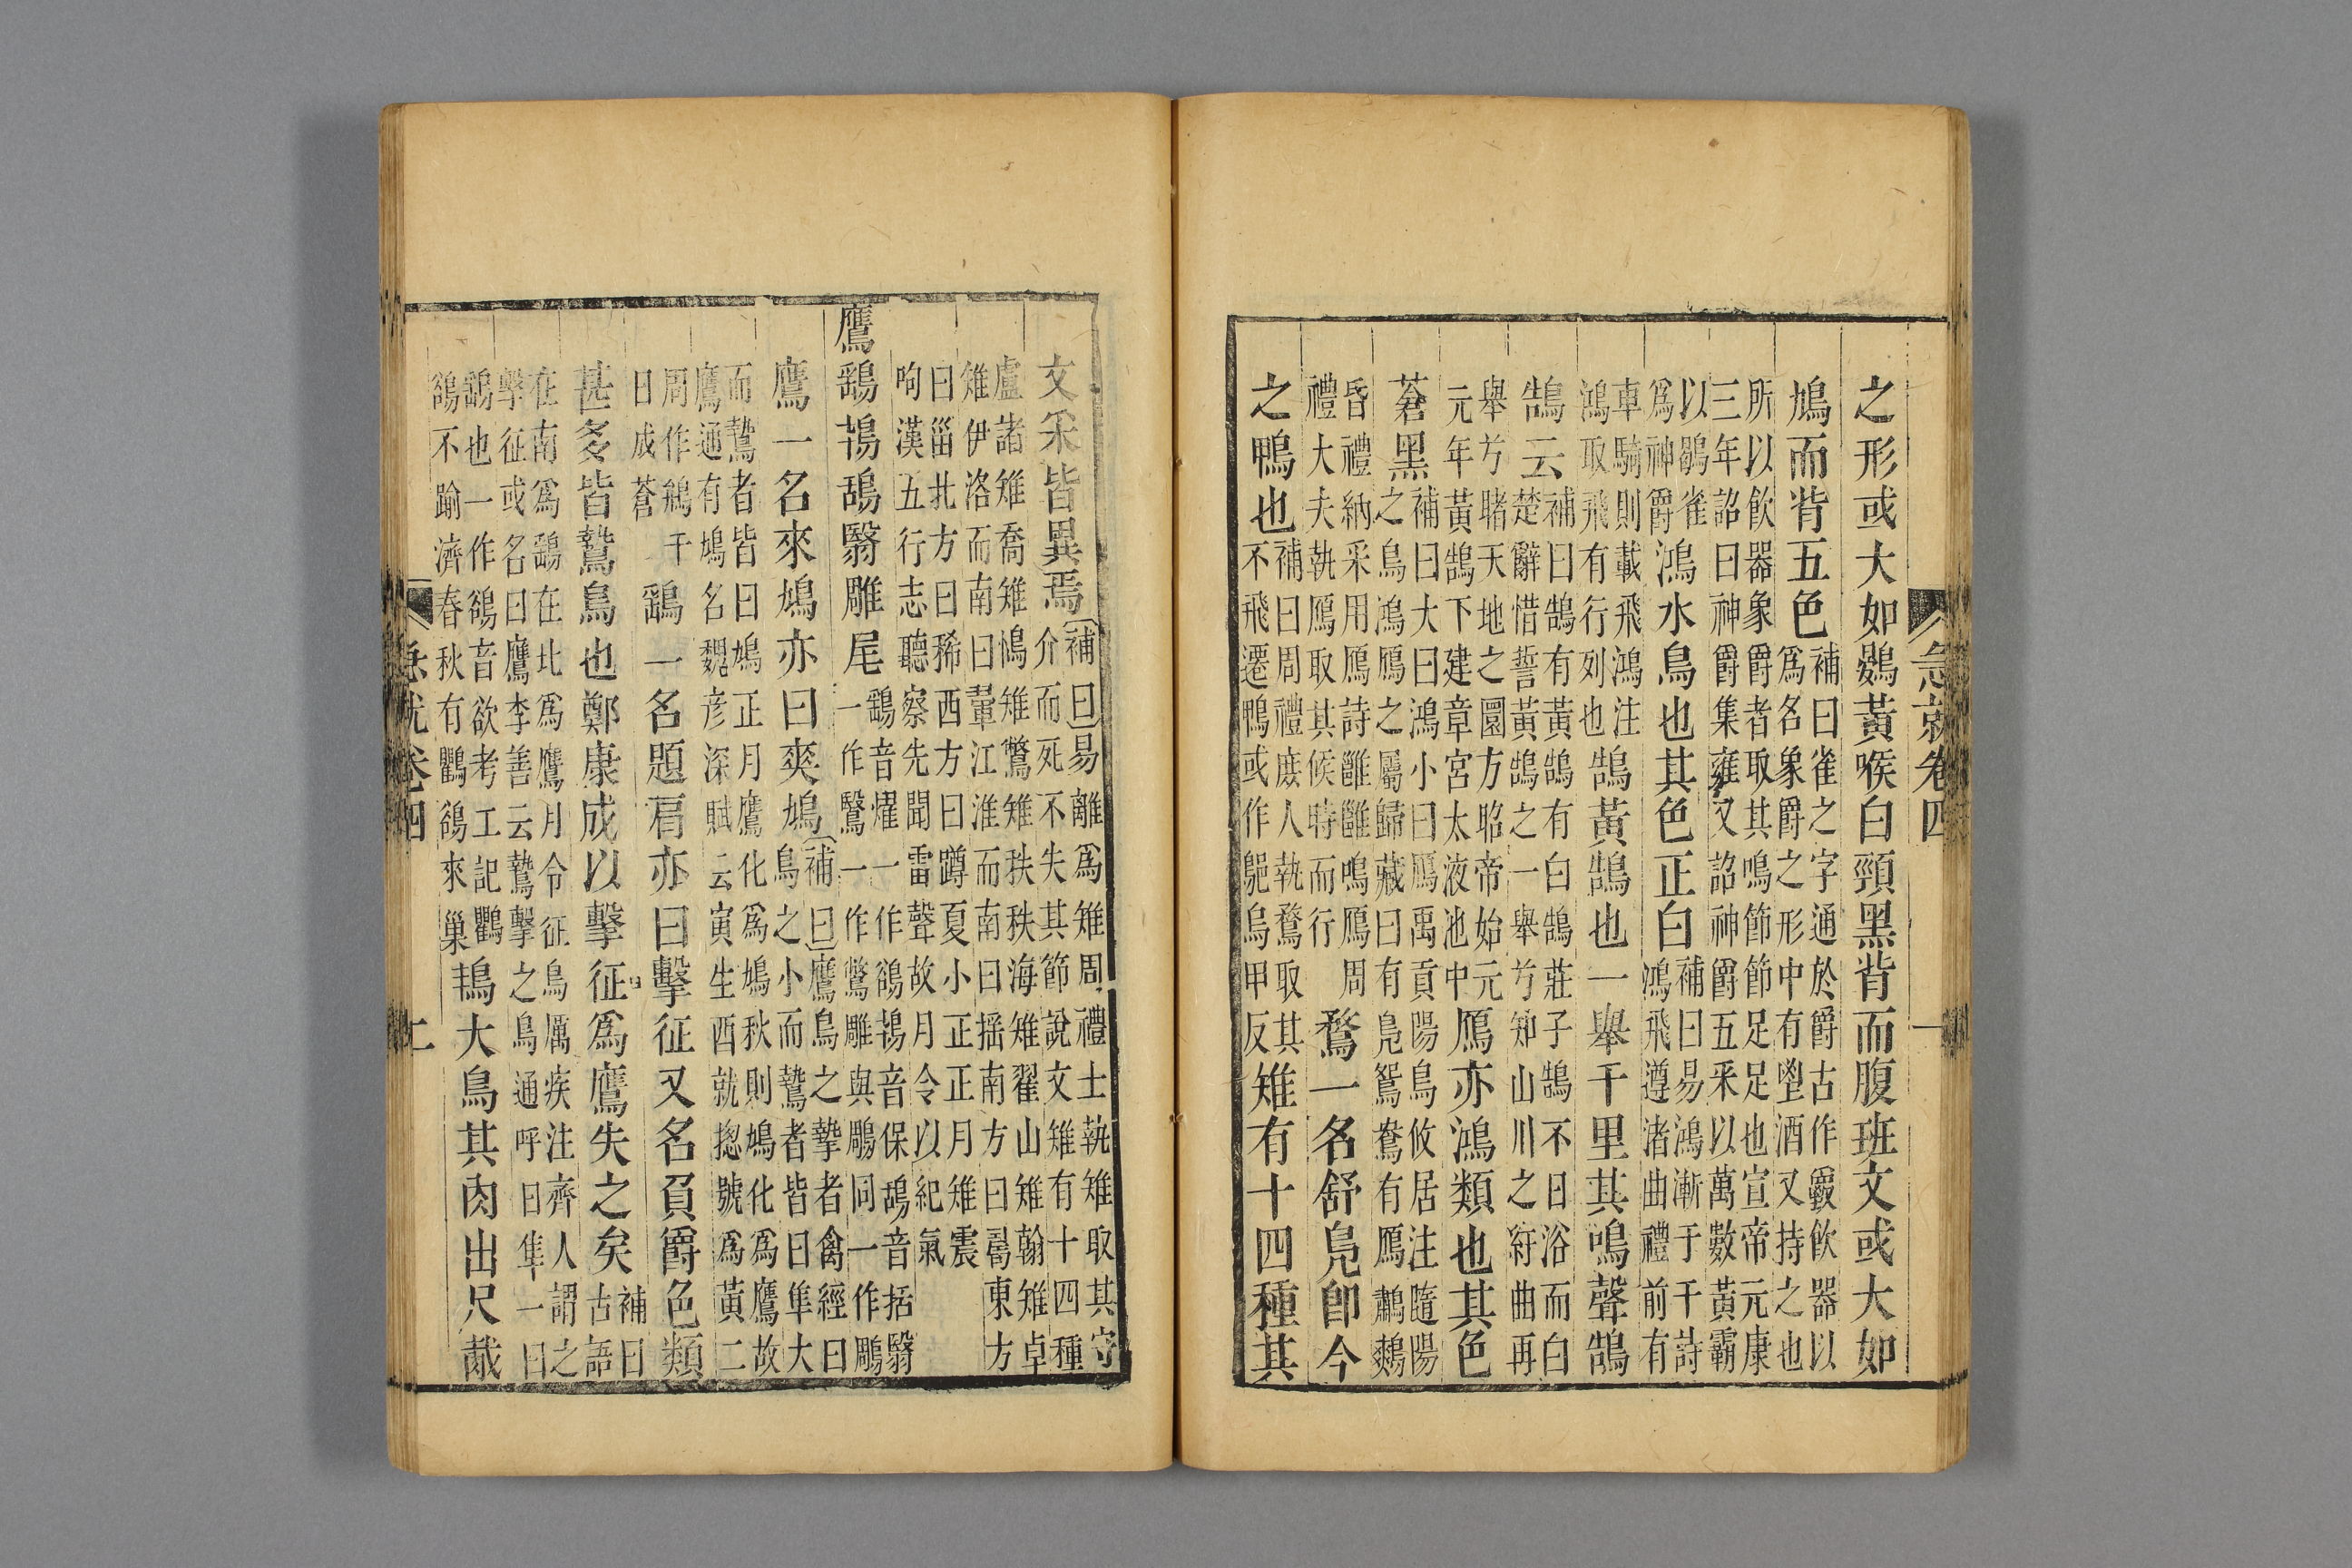 急就卷四
一
之形或大如鷃黃喉白頸黑背而腹班文或大如
鳩而背五色補曰雀之字通於爵古作𩰥飲器以
爲名象爵之形中有鬯酒又持之也
所以飲器象爵者取其鳴節節足足也宣帝元康
三年詔曰神爵集雍又詔神爵五采以萬數黃霸
以鶡雀
爲神爵鴻水鳥也其色正白補曰易鴻漸于干詩
鴻飛遵渚曲禮前有
車騎則載飛鴻注
鴻取飛有行列也鵠黃鵠也一舉千里其鳴聲鵠
鵠云補曰鵠有黃鵠有白鵠莊子鵠不日浴而白
楚辭惜誓黃鵠之一舉兮知山川之紆曲再
舉兮睹天地之圜方昭帝始元
元年黃鵠下建章宮太液池中鴈亦鴻類也其色
蒼黑補曰大曰鴻小曰鴈禹貢陽鳥攸居注隨陽
之鳥鴻鴈之屬歸藏曰有鳧鴛鴦有鴈鷫鷞
昏禮納采用鴈詩雝雝鳴鴈周
禮大夫執鴈取其候時而行鶩一名舒鳧卽今
之鴨也補曰周禮庶人執鶩取其
不飛遷鴨或作䳌烏甲反雉有十四種其
文采皆異焉補曰易離爲雉周禮士執雉取其守
介而死不失其節說文雉有十四種
盧諸雉喬雉鳪雉鷩雉秩秩海雉翟山雉翰雉卓
雉伊洛而南曰翬江淮而南曰搖南方曰𠷎東方
曰甾北方曰稀西方曰蹲夏小正正月雉震
呴漢五行志聽察先聞雷聲故月令以紀氣
鷹鷂鴇鴰翳雕尾鷂音燿一作鷂鴇音保鴰音括翳
一作鷖一作鷩雕與鵰同一作鵰
鷹一名來鳩亦曰爽鳩補曰鷹鳥之摯者禽經曰
鳥之小而鷙者皆曰隼大
而鷙者皆曰鳩正月鷹化爲鳩秋則鳩化爲鷹故
鷹通有鳩名魏彥深賦云寅生酉就揔號爲黃二
周作鷱千
日成蒼鷂一名題肩亦曰擊征又名負爵色類
甚多皆鷙鳥也鄭康成以擊征爲鷹失之矣補曰
古語
在南爲鷂在北爲鷹月令征鳥厲疾注齊人謂之
擊征或名曰鷹李善云鷙擊之鳥通呼曰隼一曰
鷂也一作鷂音欲考工記鸜
鵒不踰濟春秋有鸜鵒來巢鴇大鳥其肉出尺胾
急就卷四
二